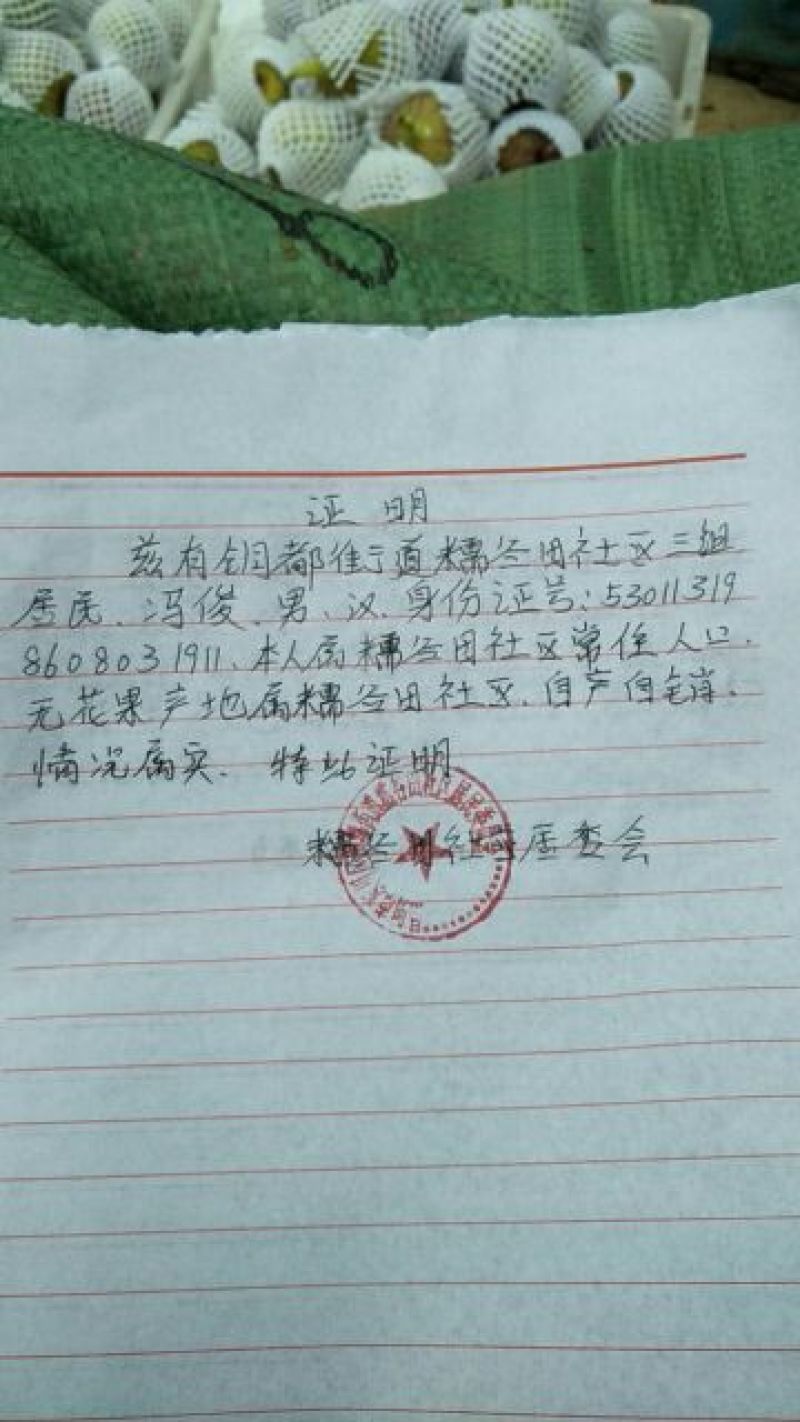 证明
兹有铜都街道糯谷田社区三组
居民、冯俊、男、汉、身份证号:53011319
8608031911、本人属糯谷田社区常住人口、
无花果产地属糯谷田社区、自产自销、
情况属实、特此证明
糯谷田社区居委会